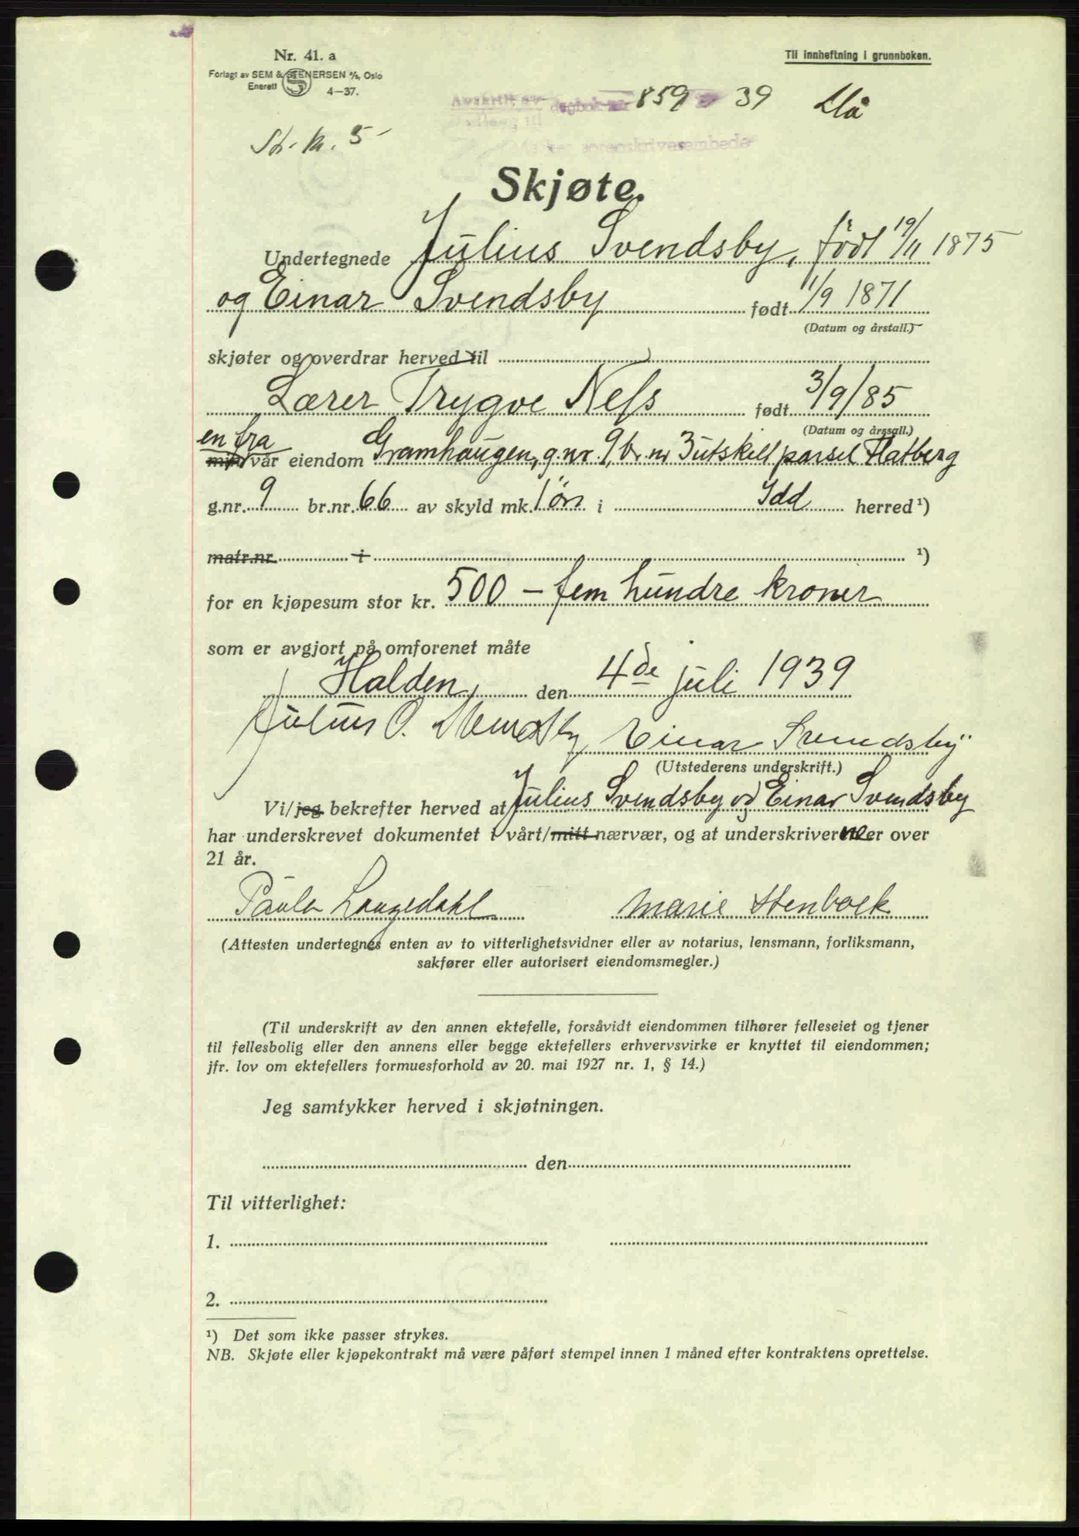 Nr. 41. a
Til innheftning i grunnboken.
Forlagt av SEM & STENERSEN A/S, Oslo
Enerett 4-37.
Avskrift dagbok nr 859 39
sorenskriverembede
St. kr. 5-
Skjøte.
Undertegnede Julius Svendsby, født 19/11 1875
og Einar Svendsby født 1/9 1871
(Datum og årstall.)
skjøter og overdrar herved til
Lærer Trygve Ness født 3/9/85
(Datum og årstall.)
en fra
min/vår eiendom Gramhaugen, g.nr. 9, br. nr 3 utskilt parsel Flatberg
g.nr. 9 br.nr. 66 av skyld mk. 1 øre i Idd herred ¹)
matr.nr. i ¹)
for en kjøpesum stor kr. 500 – fem hundre kroner
som er avgjort på omforenet måte
Halden, den 4de juli 1939
Julius O. Svendsby Einar Svendsby
(Utstederens underskrift.)
Vi/jeg bekrefter herved at Julius Svendsby og Einar Svendsby
har underskrevet dokumentet i vårt/mitt nærvær, og at underskriverne er over
21 år.
Paula Langedahl Marie Stenbock
(Attesten undertegnes enten av to vitterlighetsvidner eller av notarius, lensmann, forliksmann,
sakfører eller autorisert eiendomsmegler.)
(Til underskrift av den annen ektefelle, forsåvidt eiendommen tilhører felleseiet og tjener
til fellesbolig eller den annens eller begge ektefellers erhvervsvirke er knyttet til eiendommen;
jfr. lov om ektefellers formuesforhold av 20. mai 1927 nr. 1, § 14.)
Jeg samtykker herved i skjøtningen.
den
Til vitterlighet:
1.
2.
¹) Det som ikke passer strykes.
NB. Skjøte eller kjøpekontrakt må være påført stempel innen 1 måned efter kontraktens oprettelse.